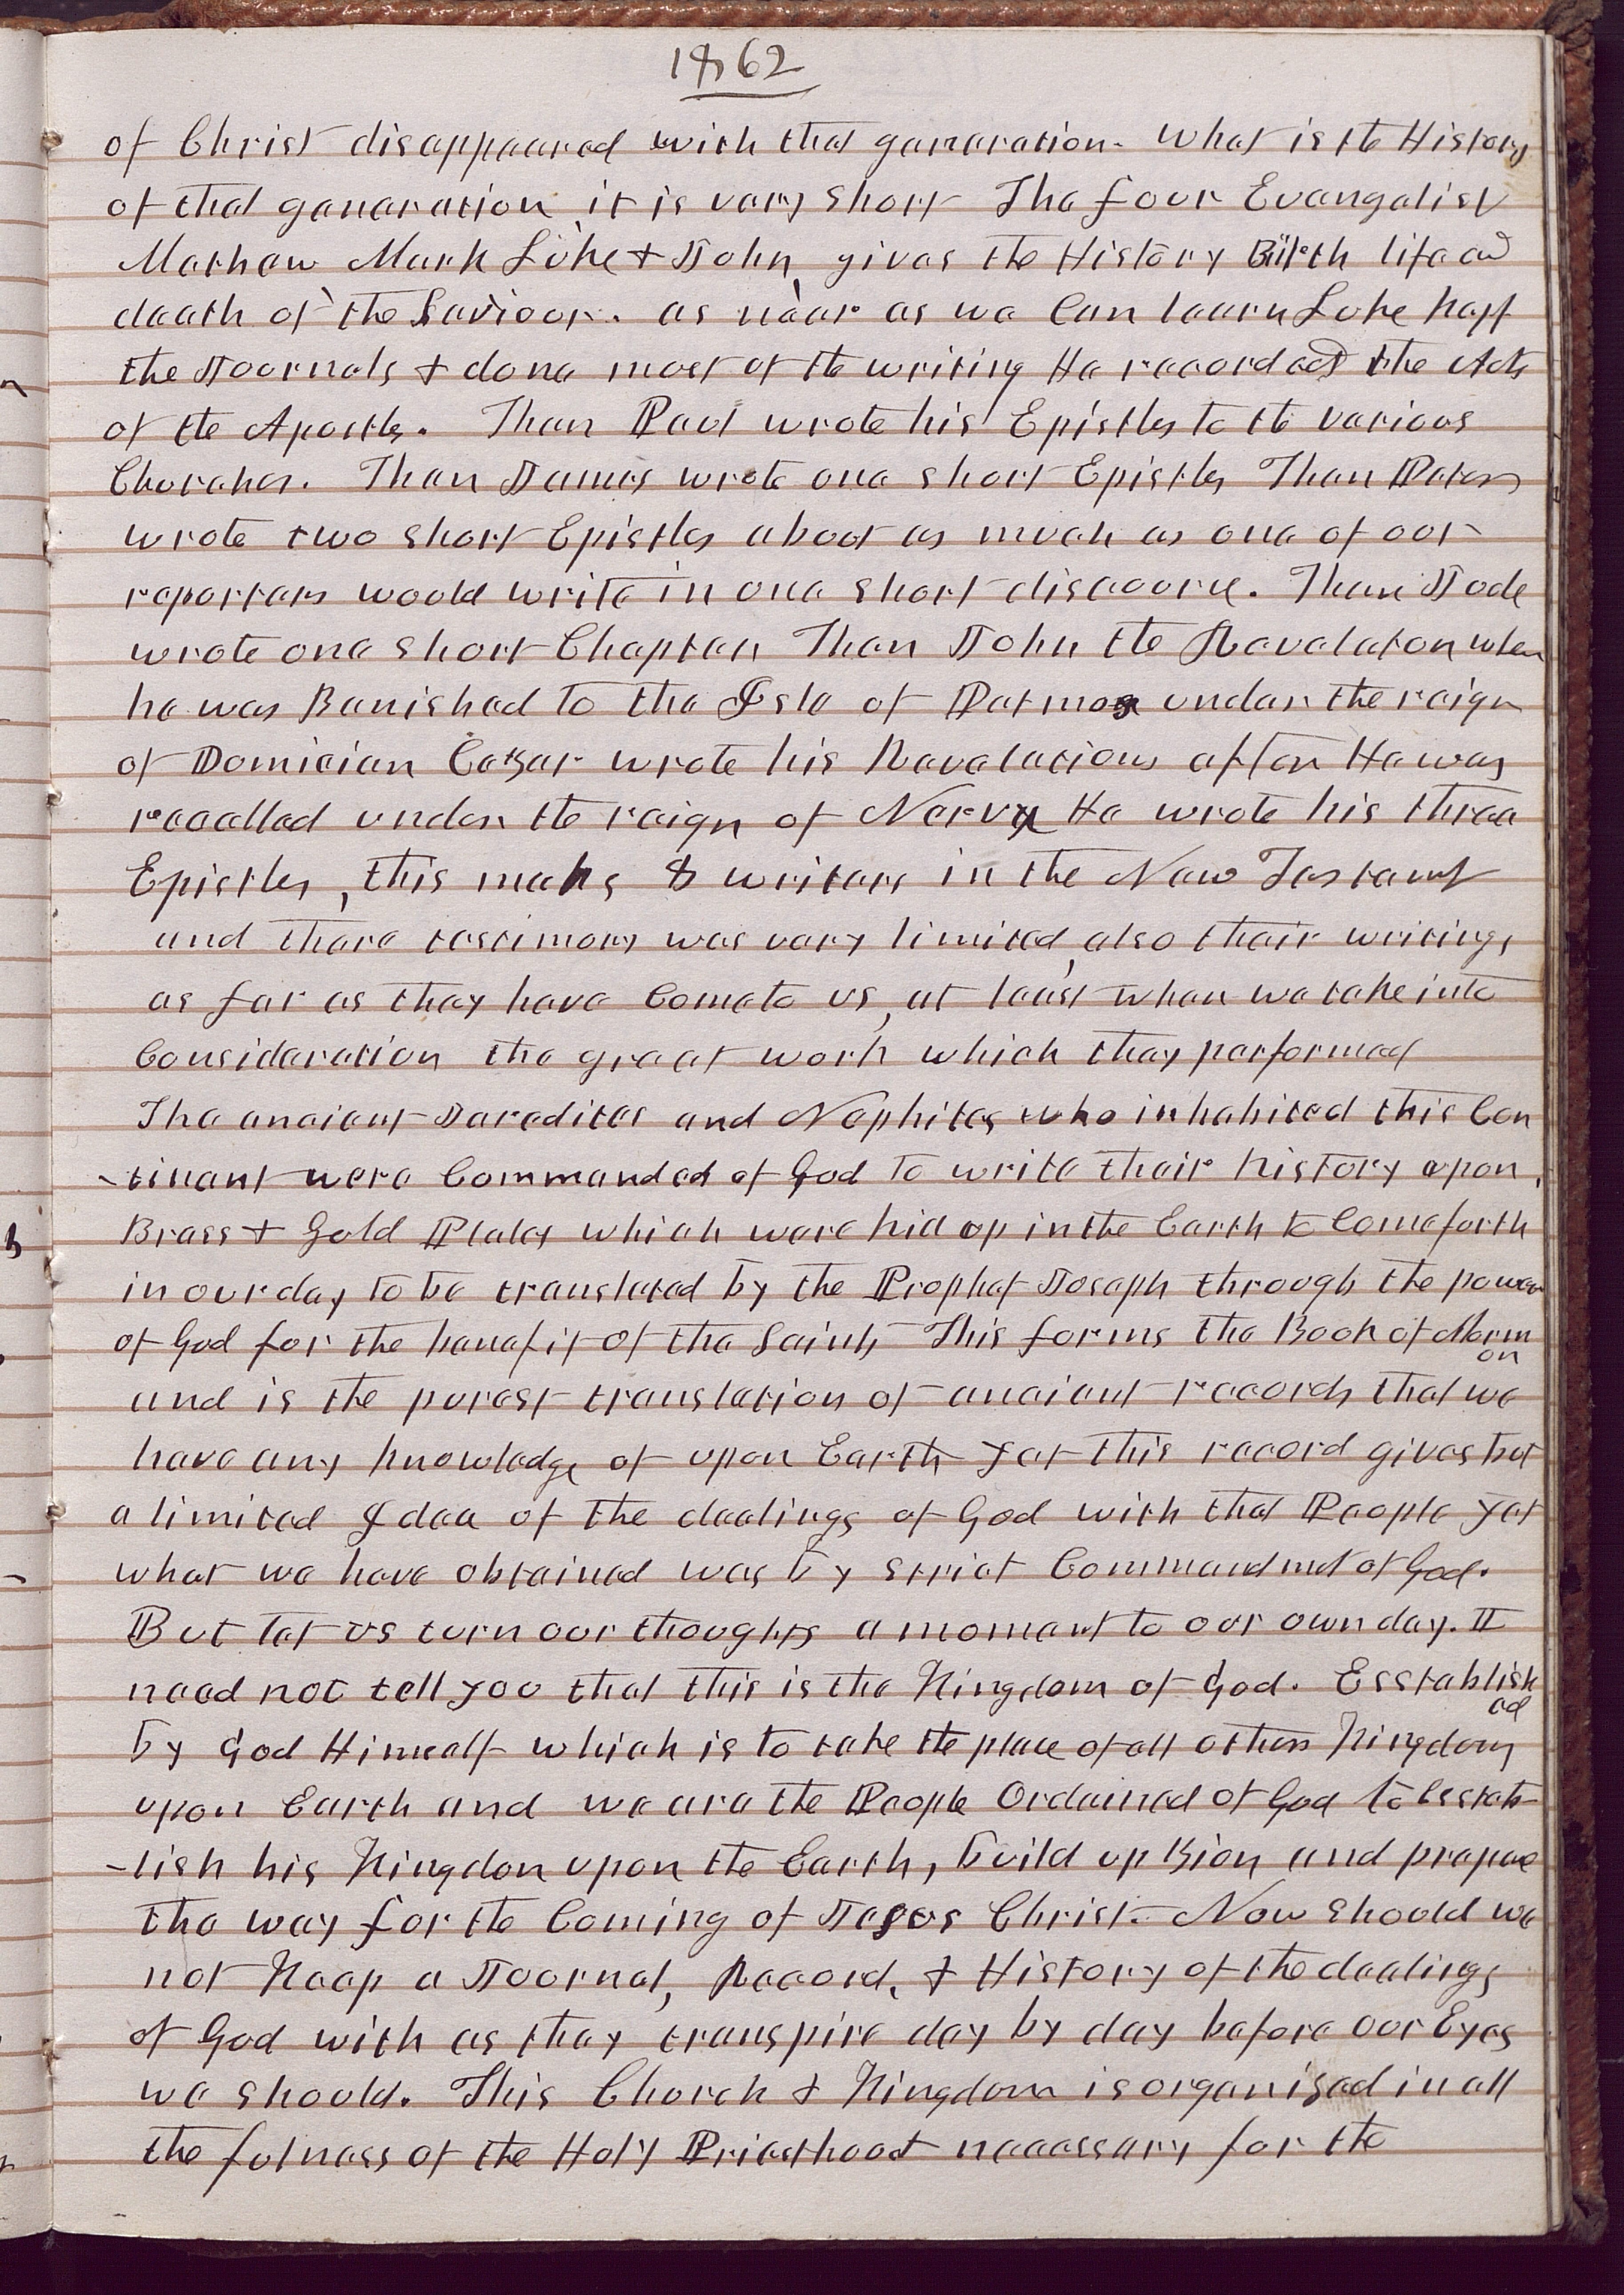 1862
of Christ disappeared with that generation. What is the History
of that generation it is very short The four Evangelist
Mathew Mark Luke & John, gives the History Birth life and
death of the Saviour. as near as we Can learn Luke kept
the Journals & done most of the writing He recorded the Acts
of the Apostles. Then Paul wrote his Epistles to the various
Churches. Then James wrote one short Epistles Then Peters
wrote two short Epistles about as much as one of our
reporters would write in one short discourse. Then Jude
wrote one short Chapter Then John the Revelator when
he was Banished to the Isle of Patmos under the reign
of Domician Cezar wrote his Revelations after He was
recalled under the reign of Nerva He wrote his three
Epistles, this makes 8 writers in the New Testament
and there testimony was very limited, also their writings
as far as they have Come to us, at least when we take into
Consideration the great work which they performed
The ancient Jaredites and Nephites who inhabited this Con
-tinant were Commanded of God to write their history upon
Brass & Gold Plates which were hid up in the Earth to Come forth
in our day to be translated by the Prophet Joseph through the power
of God for the benefit of the Saints This forms the Book of Morm
on
and is the purest translation of ancient records that we
have any knowledge of upon Earth yet this record gives but
a limited Idea of the dealings of God with that People yet
what we have obtained was by strict Commandmet of God.
But let us turn our thoughts a moment to our own day. I
need not tell you that this is the Kingdom of God. Esstablish
ed
by God Himself which is to take the place of all others Kingdoms
upon Earth and we are the People Ordained of God to Esstab-
-lish his Kingdon upon the Earth, build up Zion and prepare
the way for the Coming of Jesus Christ. Now should we
not Keep a Journal, Record, & History of the dealings
of God with as they transpire day by day before our Eyes
we should. This Church & Kingdom is organised in all
the fulness of the Holy Priesthood necessary for the